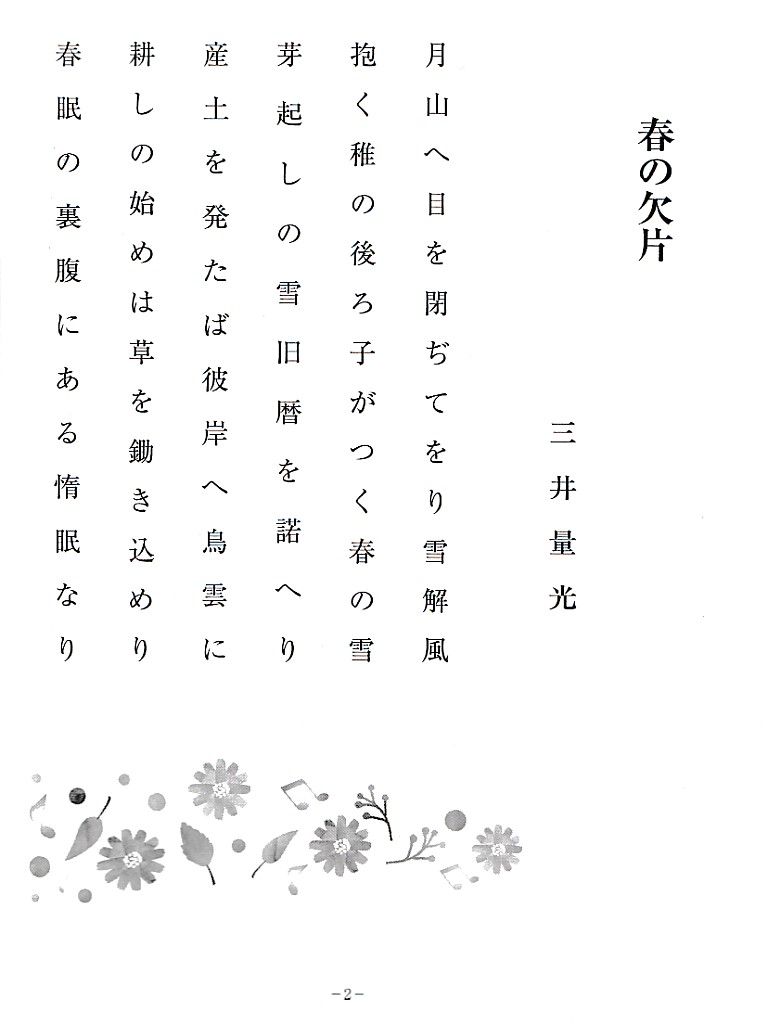 春の欠片
三井量光
月山へ目を閉ぢてをり雪解風
抱く稚の後ろ子がつく春の雪
芽起しの雪旧暦を諾へり
産土を発たば彼岸へ鳥雲に
耕しの始めは草を鋤き込めり
春眠の裏腹にある惰眠なり
-2-